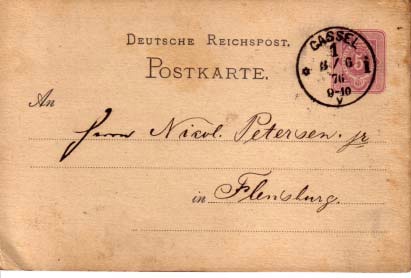 DEUTSCHE REICHSPOST.
POSTKARTE.
CASSEL
1
8/6
76
9-10
V
i
5
An
Herrn Nicol. Petersen jr
in Flensburg.